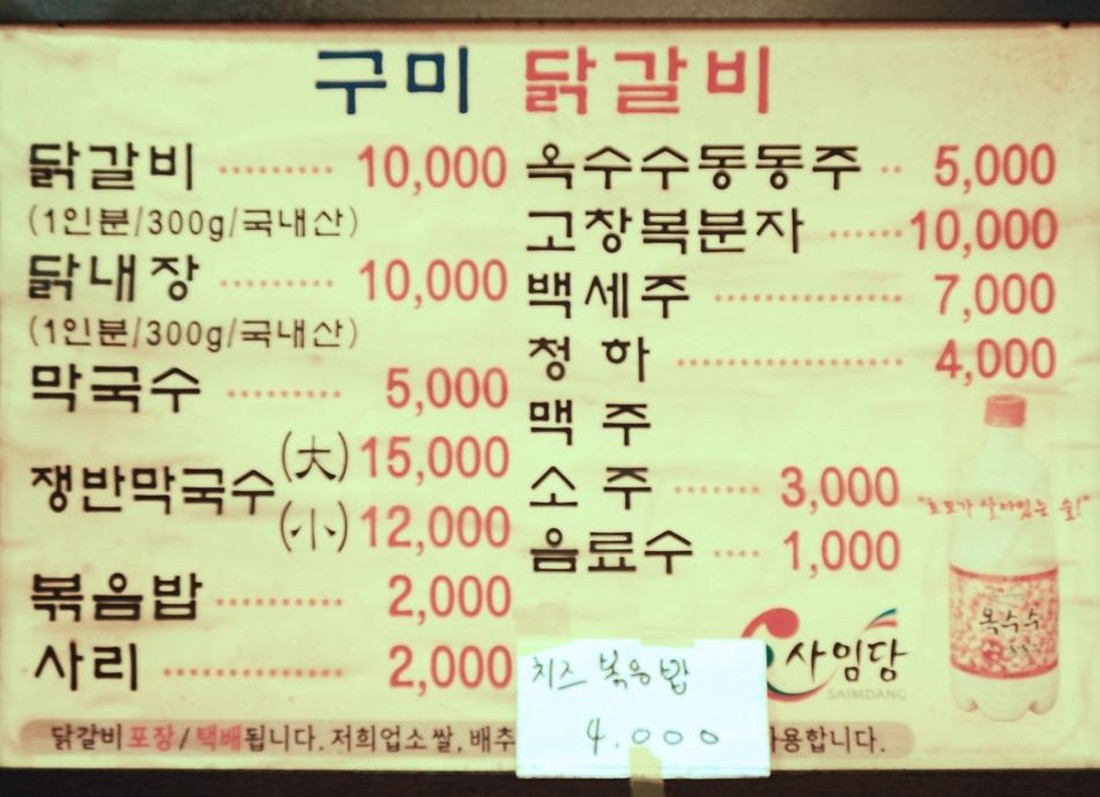 구미 닭갈비
닭갈비 ········· 10,000
(1인분/300g/국내산)
닭내장 ········· 10,000
(1인분/300g/국내산)
막국수 ········· 5,000
쟁반막국수 (大) 15,000
(小) 12,000
볶음밥 ·········· 2,000
사리 ············· 2,000
옥수수동동주 ·· 5,000
고창복분자 ······ 10,000
백세주 ··············· 7,000
청 하 ·················· 4,000
맥 주
소 주 ······· 3,000
음료수 ···· 1,000
"효모가 살아있는 술!"
옥수수
사임당
SAIMDANG
치즈 볶음밥
4.000
닭갈비 포장/택배됩니다. 저희업소쌀, 배추
사용합니다.